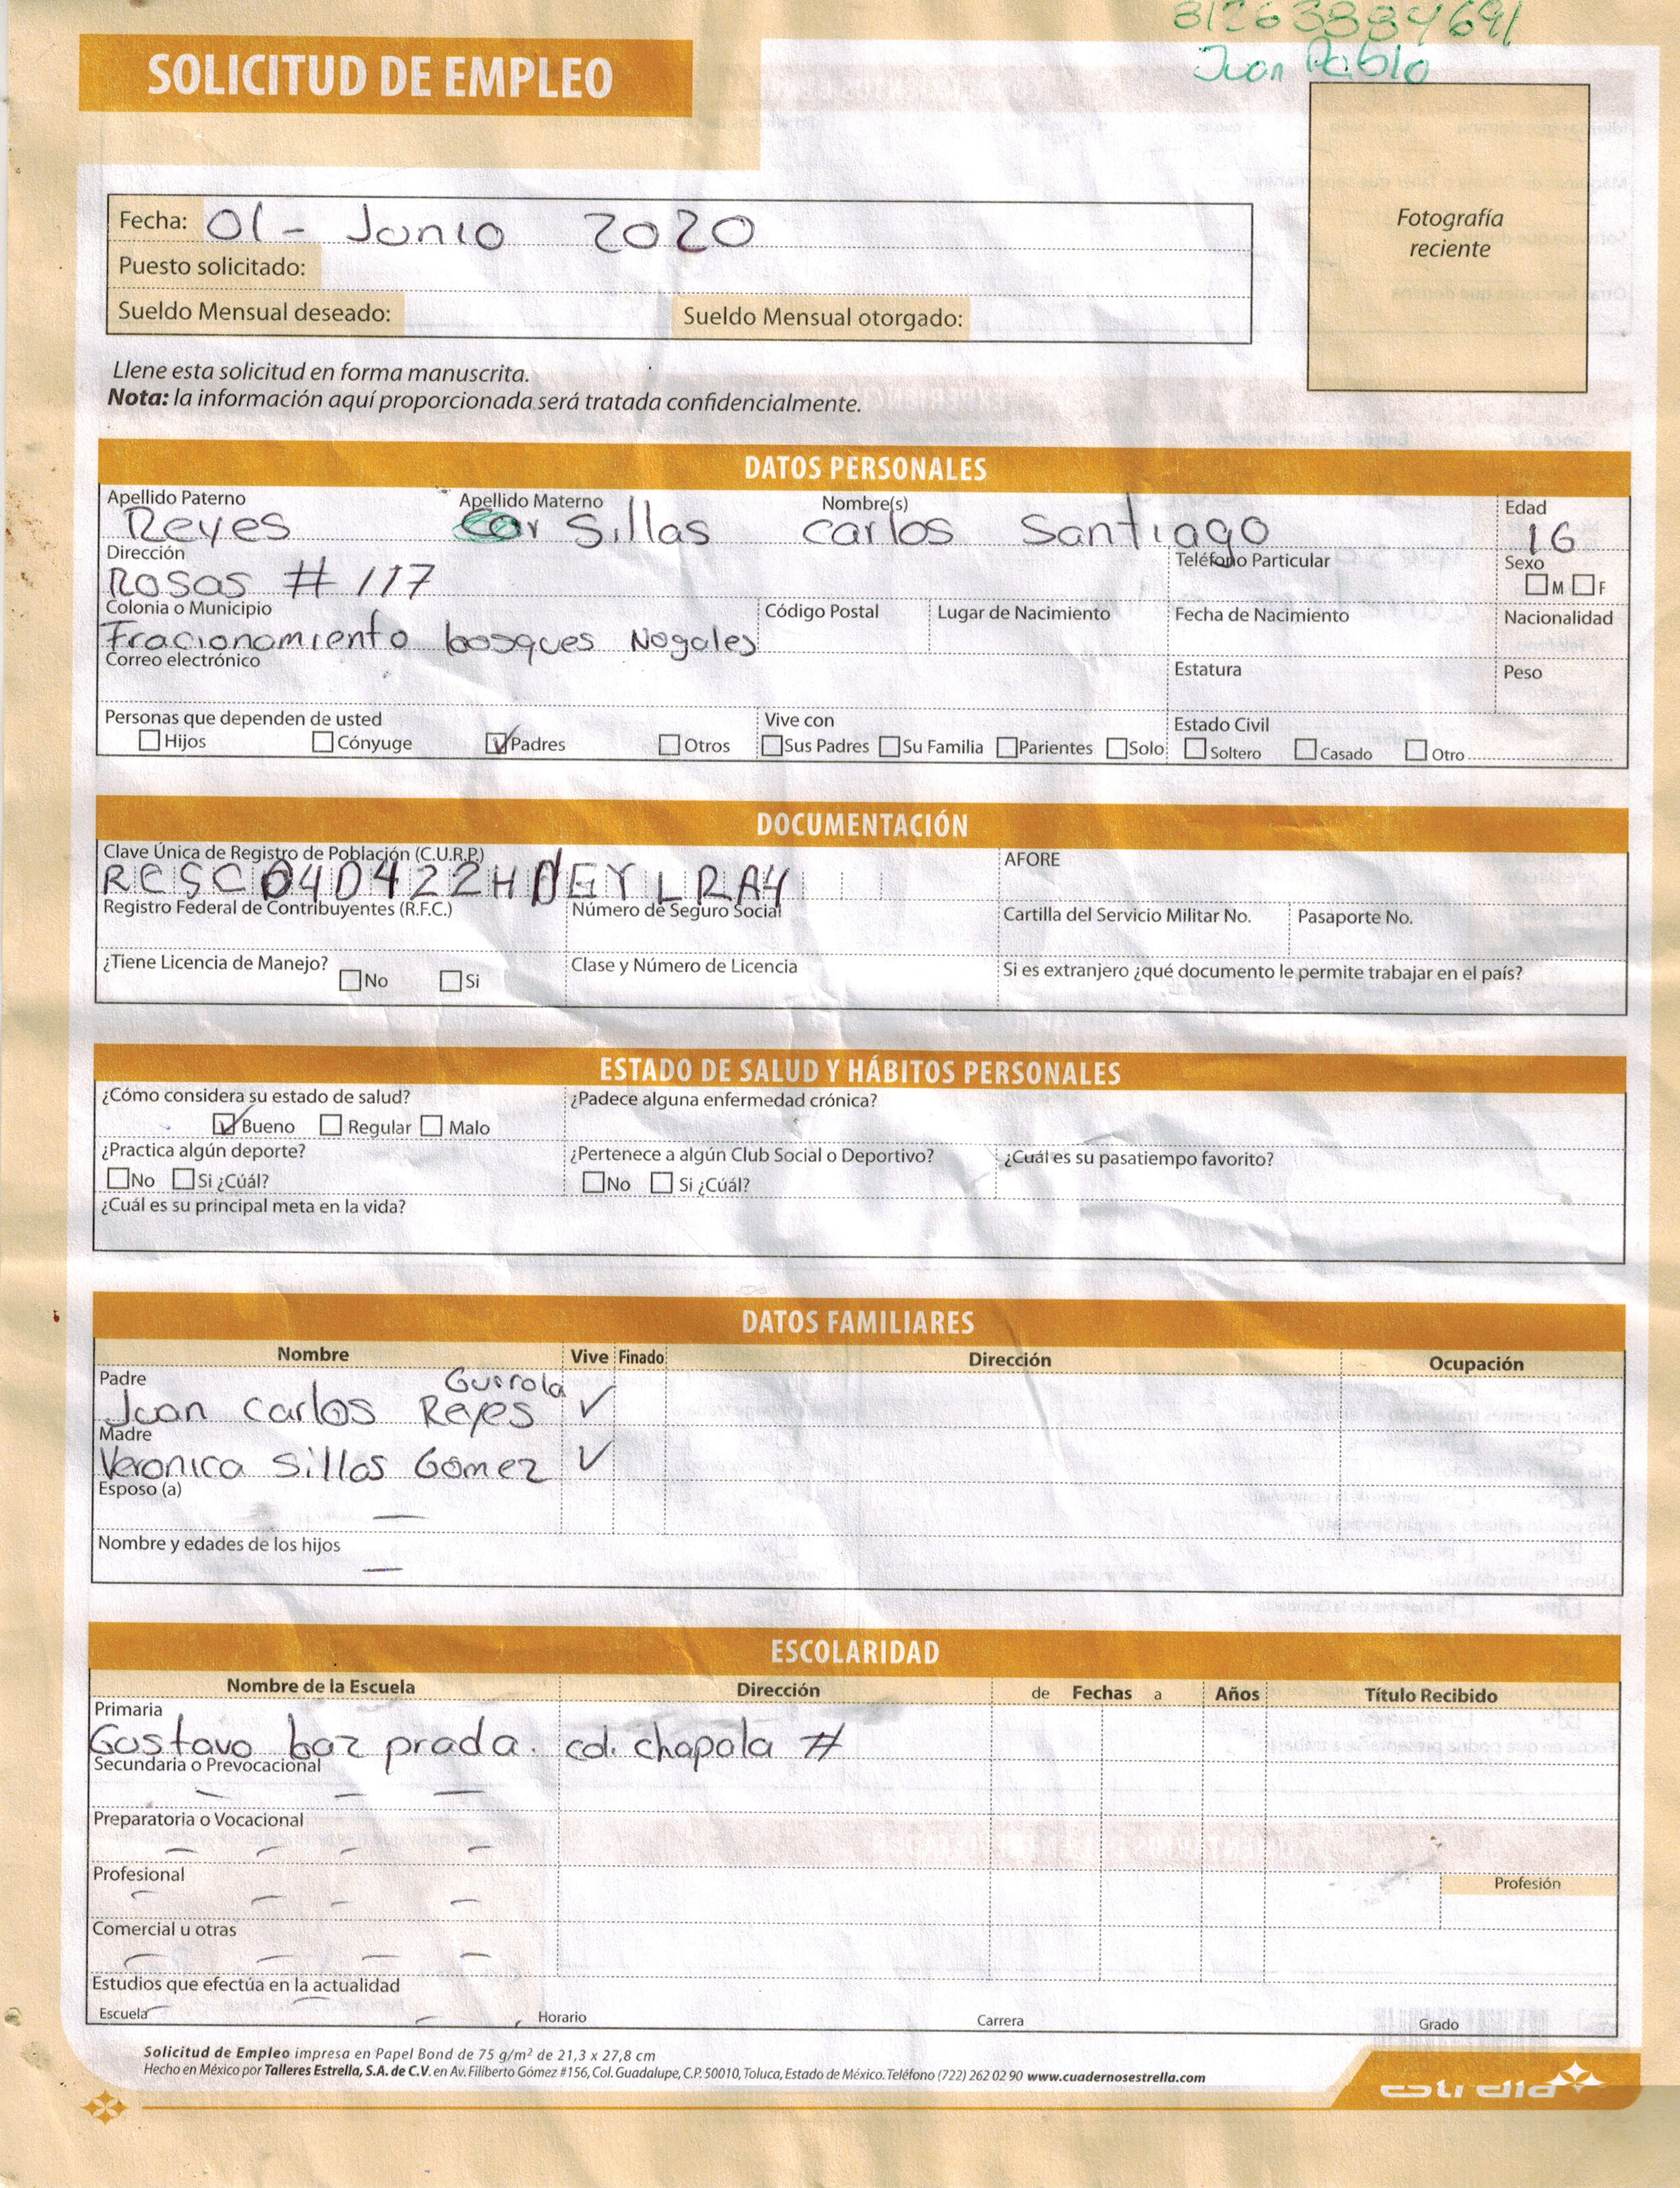 81263884691
Juan Pablo
SOLICITUD DE EMPLEO
Fotografía
reciente
Fecha: 01 - Junio 2020
Puesto solicitado:
Sueldo Mensual deseado: Sueldo Mensual otorgado:
Llene esta solicitud en forma manuscrita.
Nota: la información aquí proporcionada será tratada confidencialmente.
DATOS PERSONALES
Apellido Paterno Apellido Materno Nombre(s) Edad
Reyes Sillas Carlos Santiago 16
Dirección Teléfono Particular Sexo
Rosas # 117 M F
Colonia o Municipio Código Postal Lugar de Nacimiento Fecha de Nacimiento Nacionalidad
Fracionamiento bosques Nogales
Correo electrónico Estatura Peso
Personas que dependen de usted Vive con Estado Civil
Hijos Cónyuge Padres Otros Sus Padres Su Familia Parientes Solo Soltero Casado Otro
DOCUMENTACIÓN
Clave Única de Registro de Población (C.U.R.P.) AFORE
Registro Federal de Contribuyentes (R.F.C.) Número de Seguro Social Cartilla del Servicio Militar No. Pasaporte No.
¿Tiene Licencia de Manejo? Clase y Número de Licencia Si es extranjero ¿qué documento le permite trabajar en el país?
No Si
ESTADO DE SALUD Y HÁBITOS PERSONALES
¿Cómo considera su estado de salud? ¿Padece alguna enfermedad crónica?
Bueno Regular Malo
¿Practica algún deporte? ¿Pertenece a algún Club Social o Deportivo? ¿Cuál es su pasatiempo favorito?
No Si ¿Cúál? No Si ¿Cúál?
¿Cuál es su principal meta en la vida?
DATOS FAMILIARES
Nombre Vive Finado Dirección Ocupación
Padre
Juan Carlos Reyes
Madre
Veronica Sillas Gómez
Esposo (a)
Nombre y edades de los hijos
ESCOLARIDAD
Nombre de la Escuela Dirección de Fechas a Años Título Recibido
Primaria
Gustavo baz prada. col. chapala #
Secundaria o Prevocacional
Preparatoria o Vocacional
Profesional Profesión
Comercial u otras
Estudios que efectúa en la actualidad
Escuela Horario Carrera Grado
Solicitud de Empleo impresa en Papel Bond de 75 g/m² de 21,3 x 27,8 cm
Hecho en México por Talleres Estrella, S.A. de C.V. en Av. Filiberto Gómez #156, Col. Guadalupe, C.P. 50010, Toluca, Estado de México. Teléfono (722) 262 02 90 www.cuadernosestrella.com
estrella